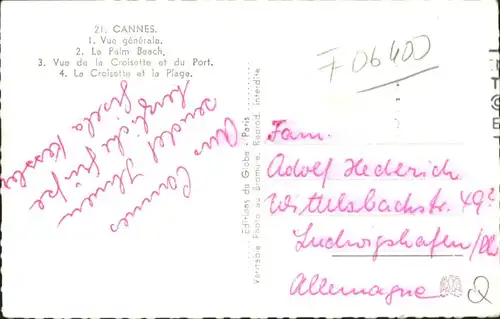 21. CANNES.
1. Vue générale.
2. Le Palm Beach.
3. Vue de la Croisette et du Port.
4. La Croisette et la Plage.
F 06400
Editions du Globe - Paris
Véritable Photo au Bromure. Reprod. interdite
Aus
Cannes
sendet Ihnen
Gisela Kessler
Fam.
Adolf Hederich
Wittelsbachstr. 49
Ludwigshafen/Rh
Allemagne